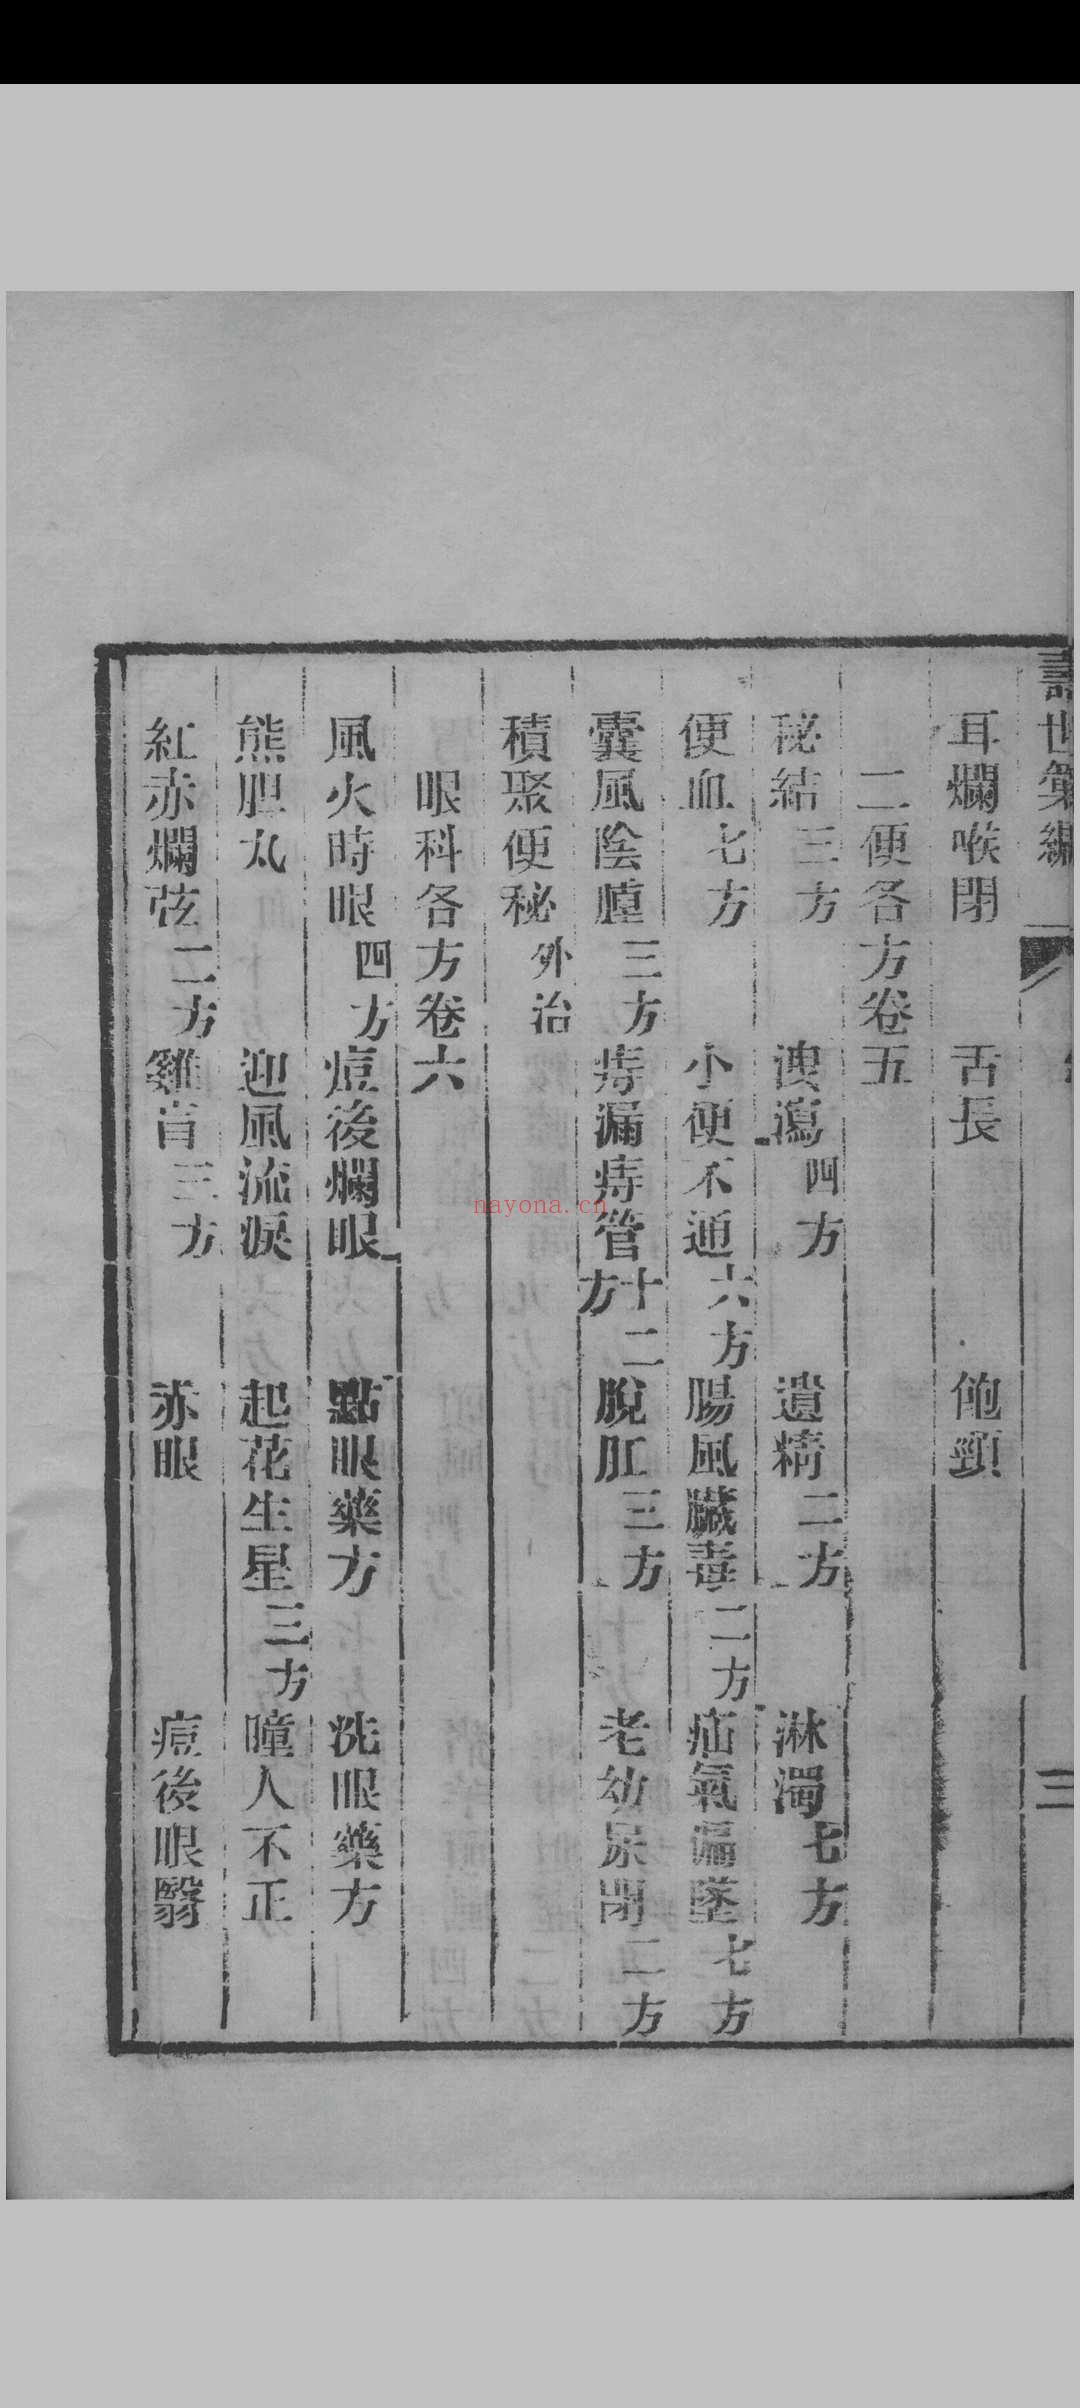 世
三
耳爛喉閉 舌長 䶌頸
二便各方卷五
秘結三方 溏瀉四方 遺精二方 淋濁七方
便血七方 小便不通六方 腸風臟毒二方 疝氣偏墜七方
囊風陰腫三方 痔漏痔管十二方 脫肛三方 老幼尿閉二方
積聚便秘外治
眼科各方卷六
風火時眼四方 痘後爛眼 點眼藥方 洗眼藥方
熊胆丸 迎風流淚 起花生星三方 瞳人不正
紅赤爛弦二方 雞肓三方 赤眼 痘後眼翳
nayona.cn